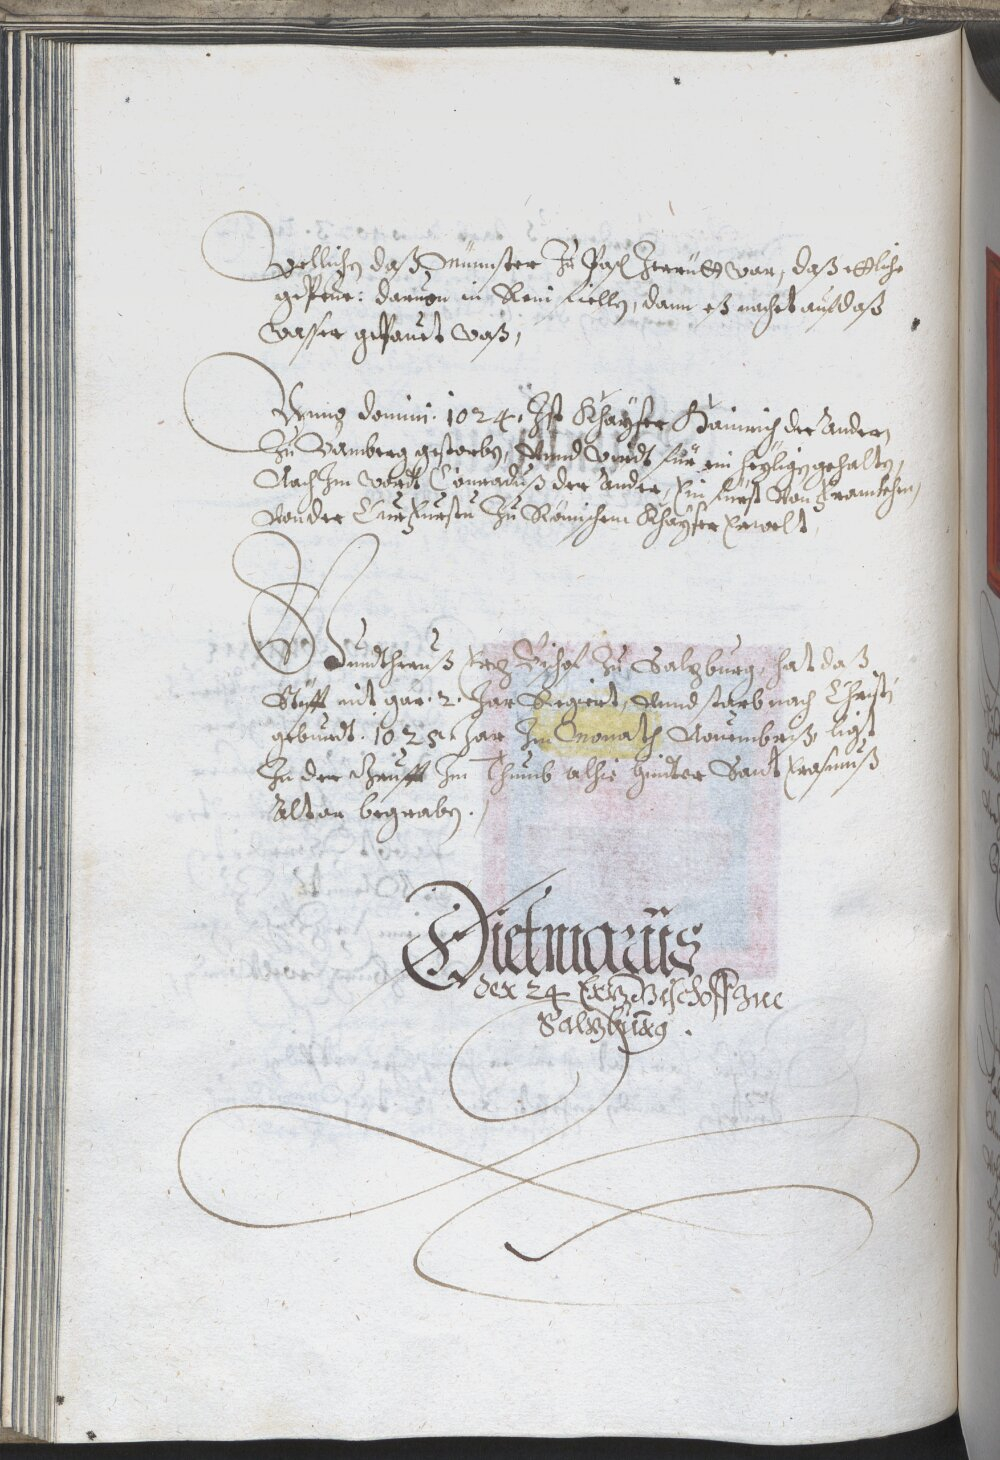 Wellichen daß Münnster Zu Pasl Zerrütt war, daß ettliche
gepeue: daruon in Rein fielln, dann es nachet auf daß
wasser gepauet waß,
Anno domini. 1024. Ist Khayser Hainrich der Ander
Zu Bamberg gestorbn, Vnnd wirdt für ein heylign gehaltn,
Nach Im wardt Conraduß der Ander, Ein fürst von Frannkhen,
Von der Churfürsten Zu Römischem Khayser Erwelt,
Gundthrauß Erz Bischof Zu Salzburg, hat daß
Stifft nit gar .2. Jar Regiert, Vnnd starb nach Christi
geburdt. 1025. Jar Im Monath Nouembriß, ligt
In der Grufft Im Thumb alhie hinder Sant Erasmuß
Altar begrabn.
Dietmarus
der 24 Erz Bischoff zue
Salzburg.